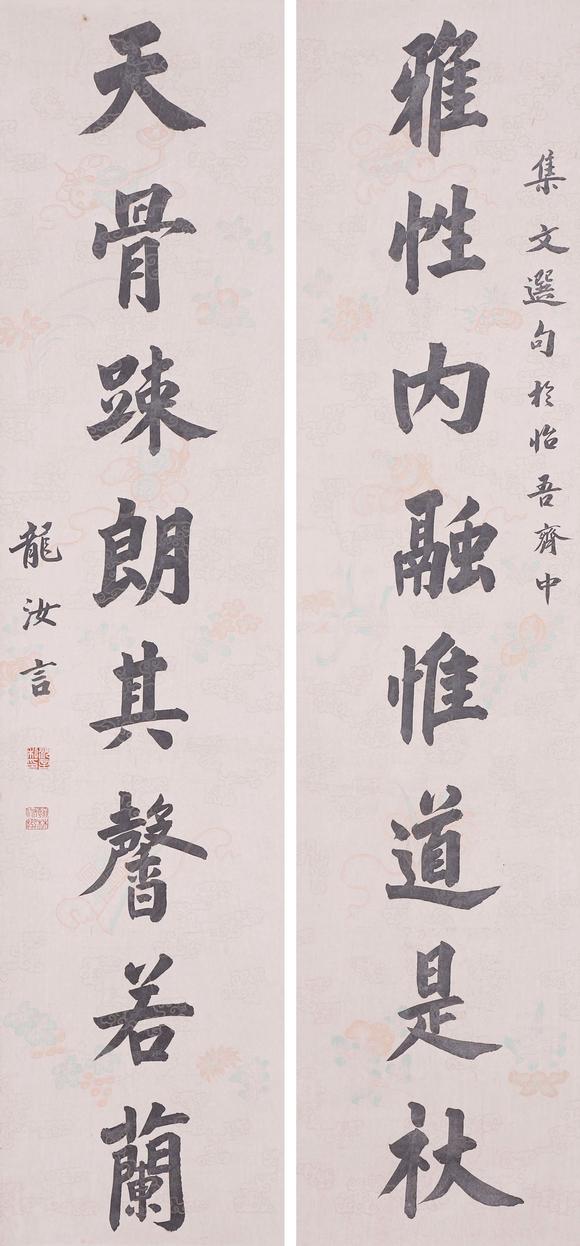 集文選句於怡吾齊中
雅性内融惟道是杖
天骨踈朗其馨若蘭
龍汝言